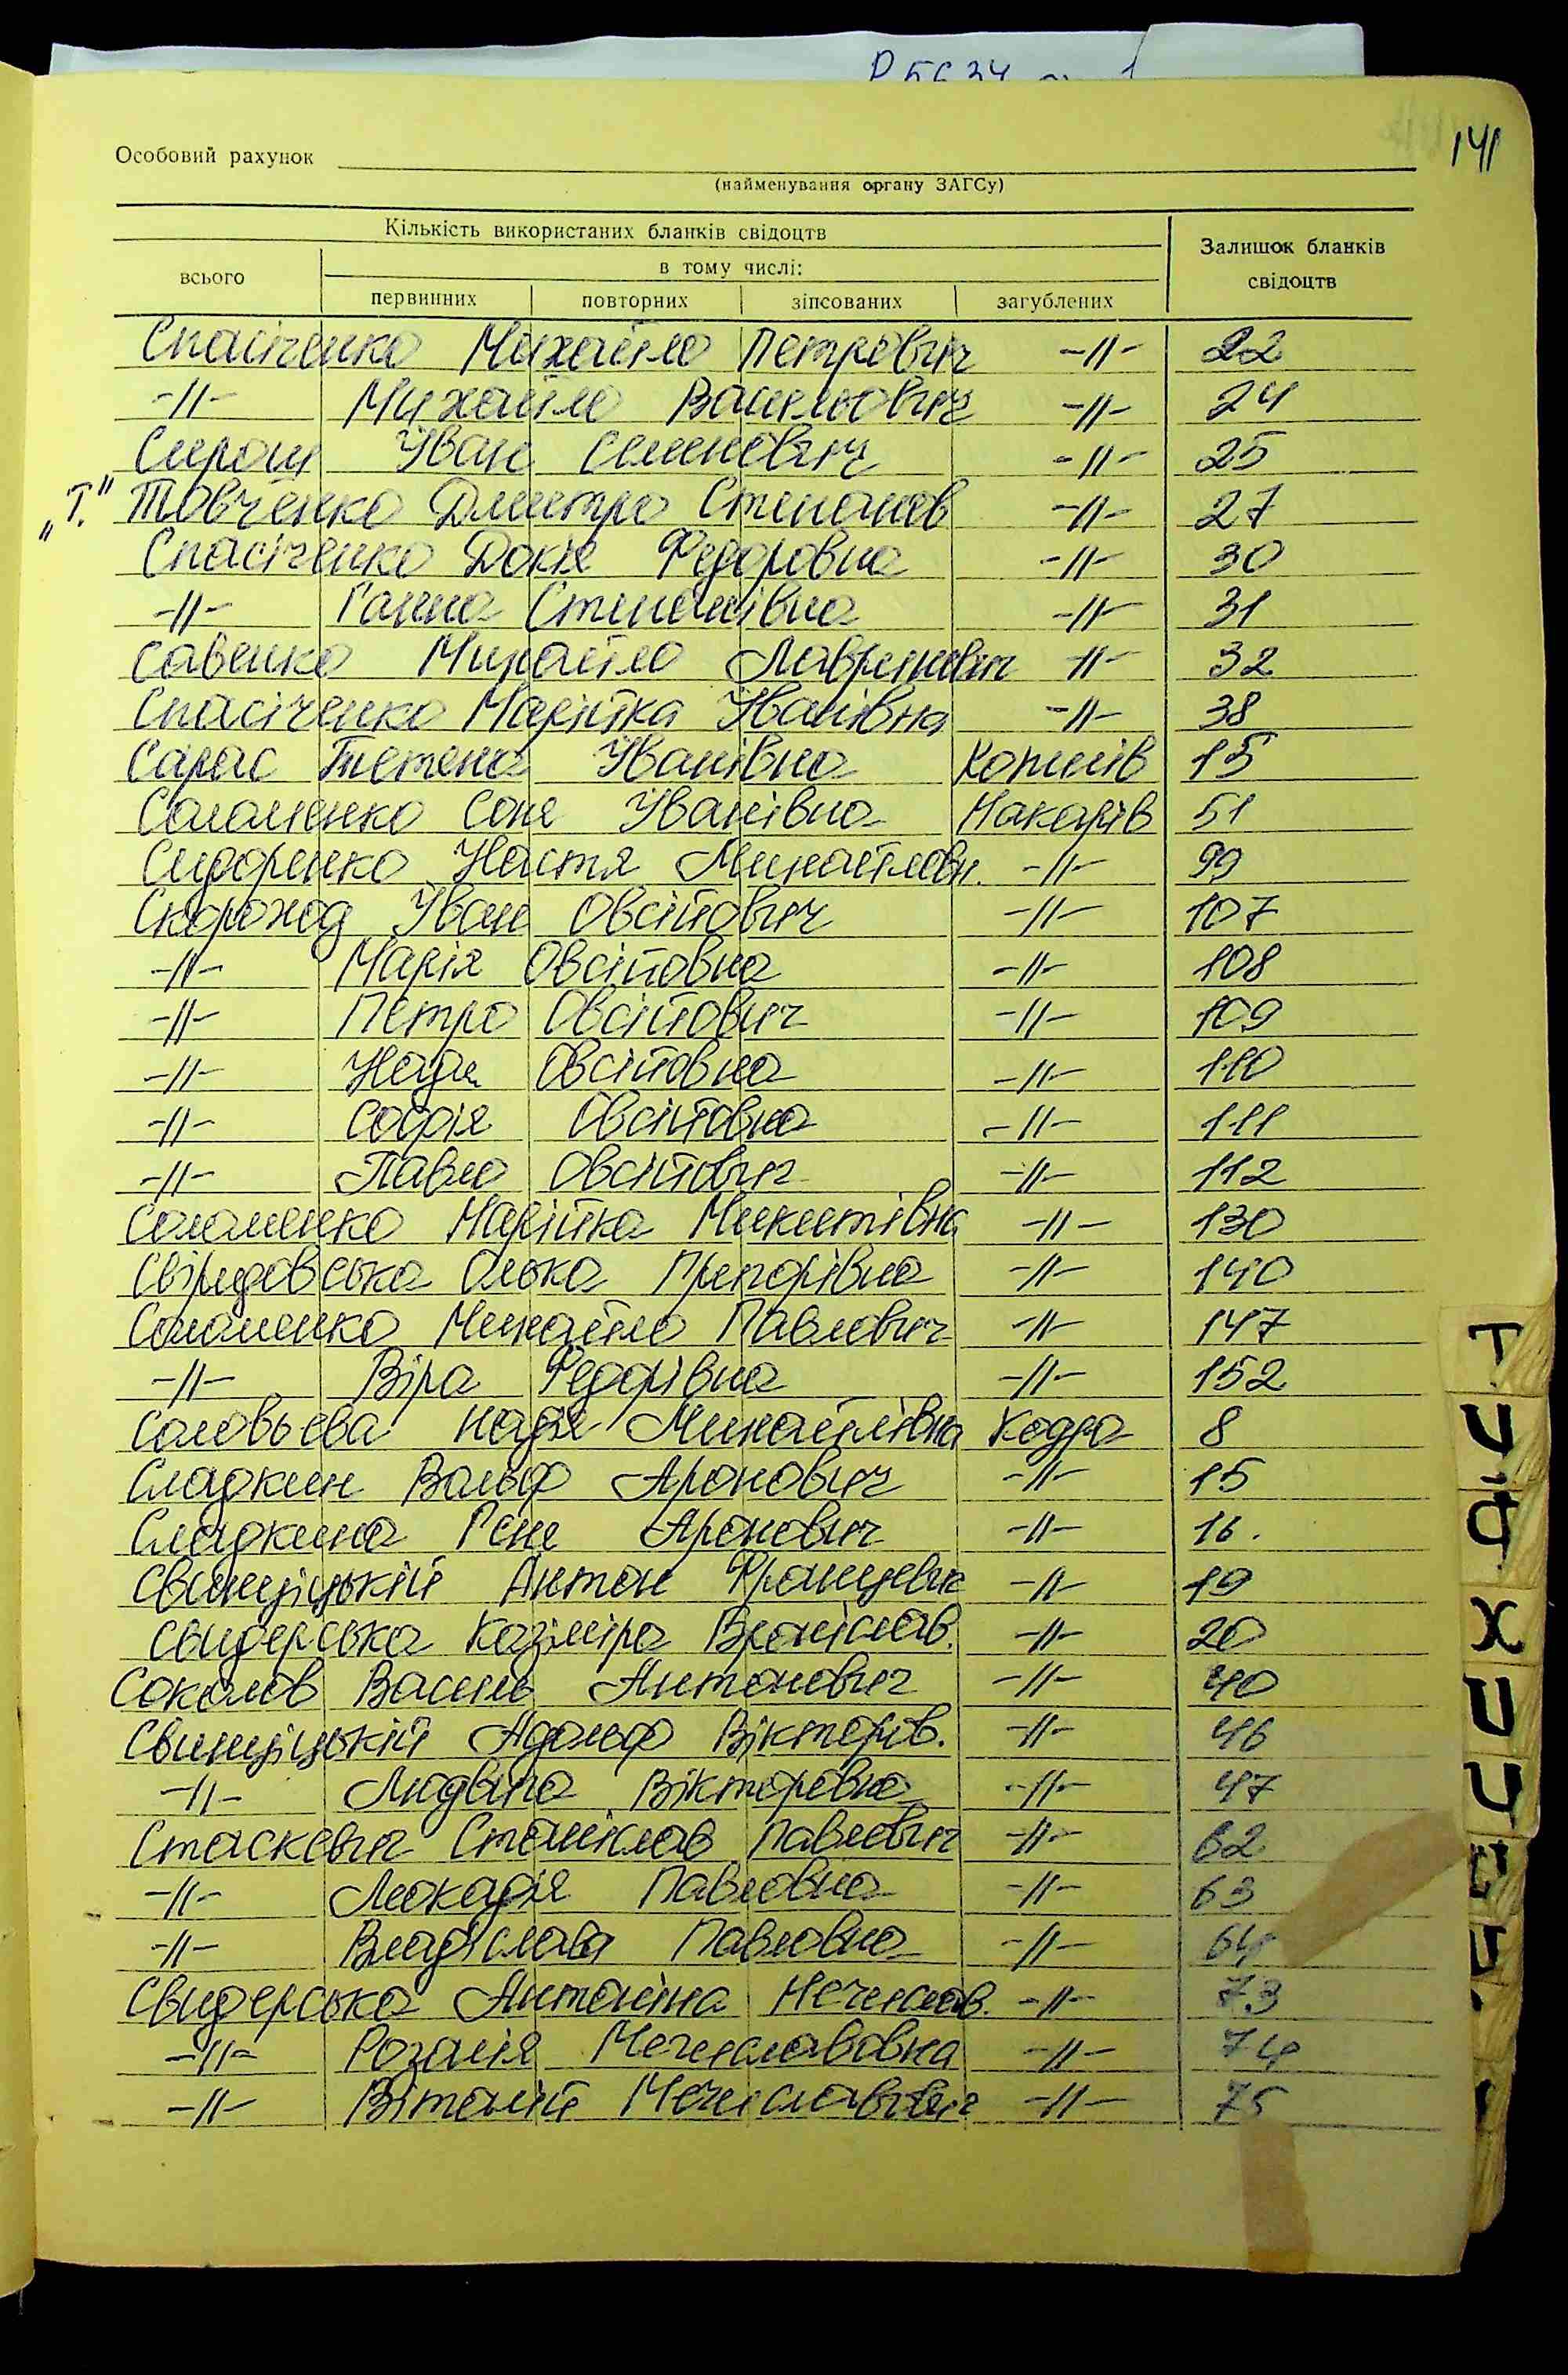 141
Особовий рахунок
(найменування органу ЗАГСу)
Кількість використаних бланків свідоцтв
Залишок бланків свідоцтв
всього
в тому числі:
первинних повторних зіпсованих загублених
Спасіченко Михайло Петрович -//- 22
-//- Михайло Васильович -//- 24
Сирош Іван Семенович -//- 25
„Т." Товченко Дмитро Степанов -//- 27
Спасіченко Докія Федоровна -//- 30
-//- Ганна Степанівна -//- 31
Савенко Михайло Лавринович -//- 32
Спасіченко Марійка Іванівна -//- 38
Сарас Тетена Іванівна 15
Соломенко Соня Іванівна Макарів 51
Сидоренко Настя Михайловн. -//- 99
Скороход Іван Овсійович -//- 107
-//- Марія Овсійовна -//- 108
-//- Петро Овсійович -//- 109
-//- Надя Овсійовна -//- 110
-//- Софія Овсійовна -//- 111
-//- Павло Овсійович -//- 112
Соломенко Марійка Микитівна -//- 130
Свіридовська Олька -//- 140
Соломенко Михайло Павлович -//- 147
-//- Віра Федорівна -//- 152
Соловьева Надія Михайлівна Кодра 8
Сладкин Вольф Аронович -//- 15
Сладкина Геня Аронович -//- 16.
Свинціцький Антон Францевич -//- 19
Свидерська Казіміра Броніслав. -//- 20
Соколов Василь Антонович -//- 40
Свинціцький Адольф Вікторів. -//- 46
-//- Людвіга Вікторовна -//- 47
Стаскевич Станіслав Павлович -//- 62
-//- Леокадія Павловна -//- 63
-//- Владіслава Павловна -//- 64
Свидерська Антоніна Мечеслав. -//- 73
-//- Розалія Мечеславовна -//- 74
-//- Віталій Мечеславович -//- 75
Т
Ф
Х